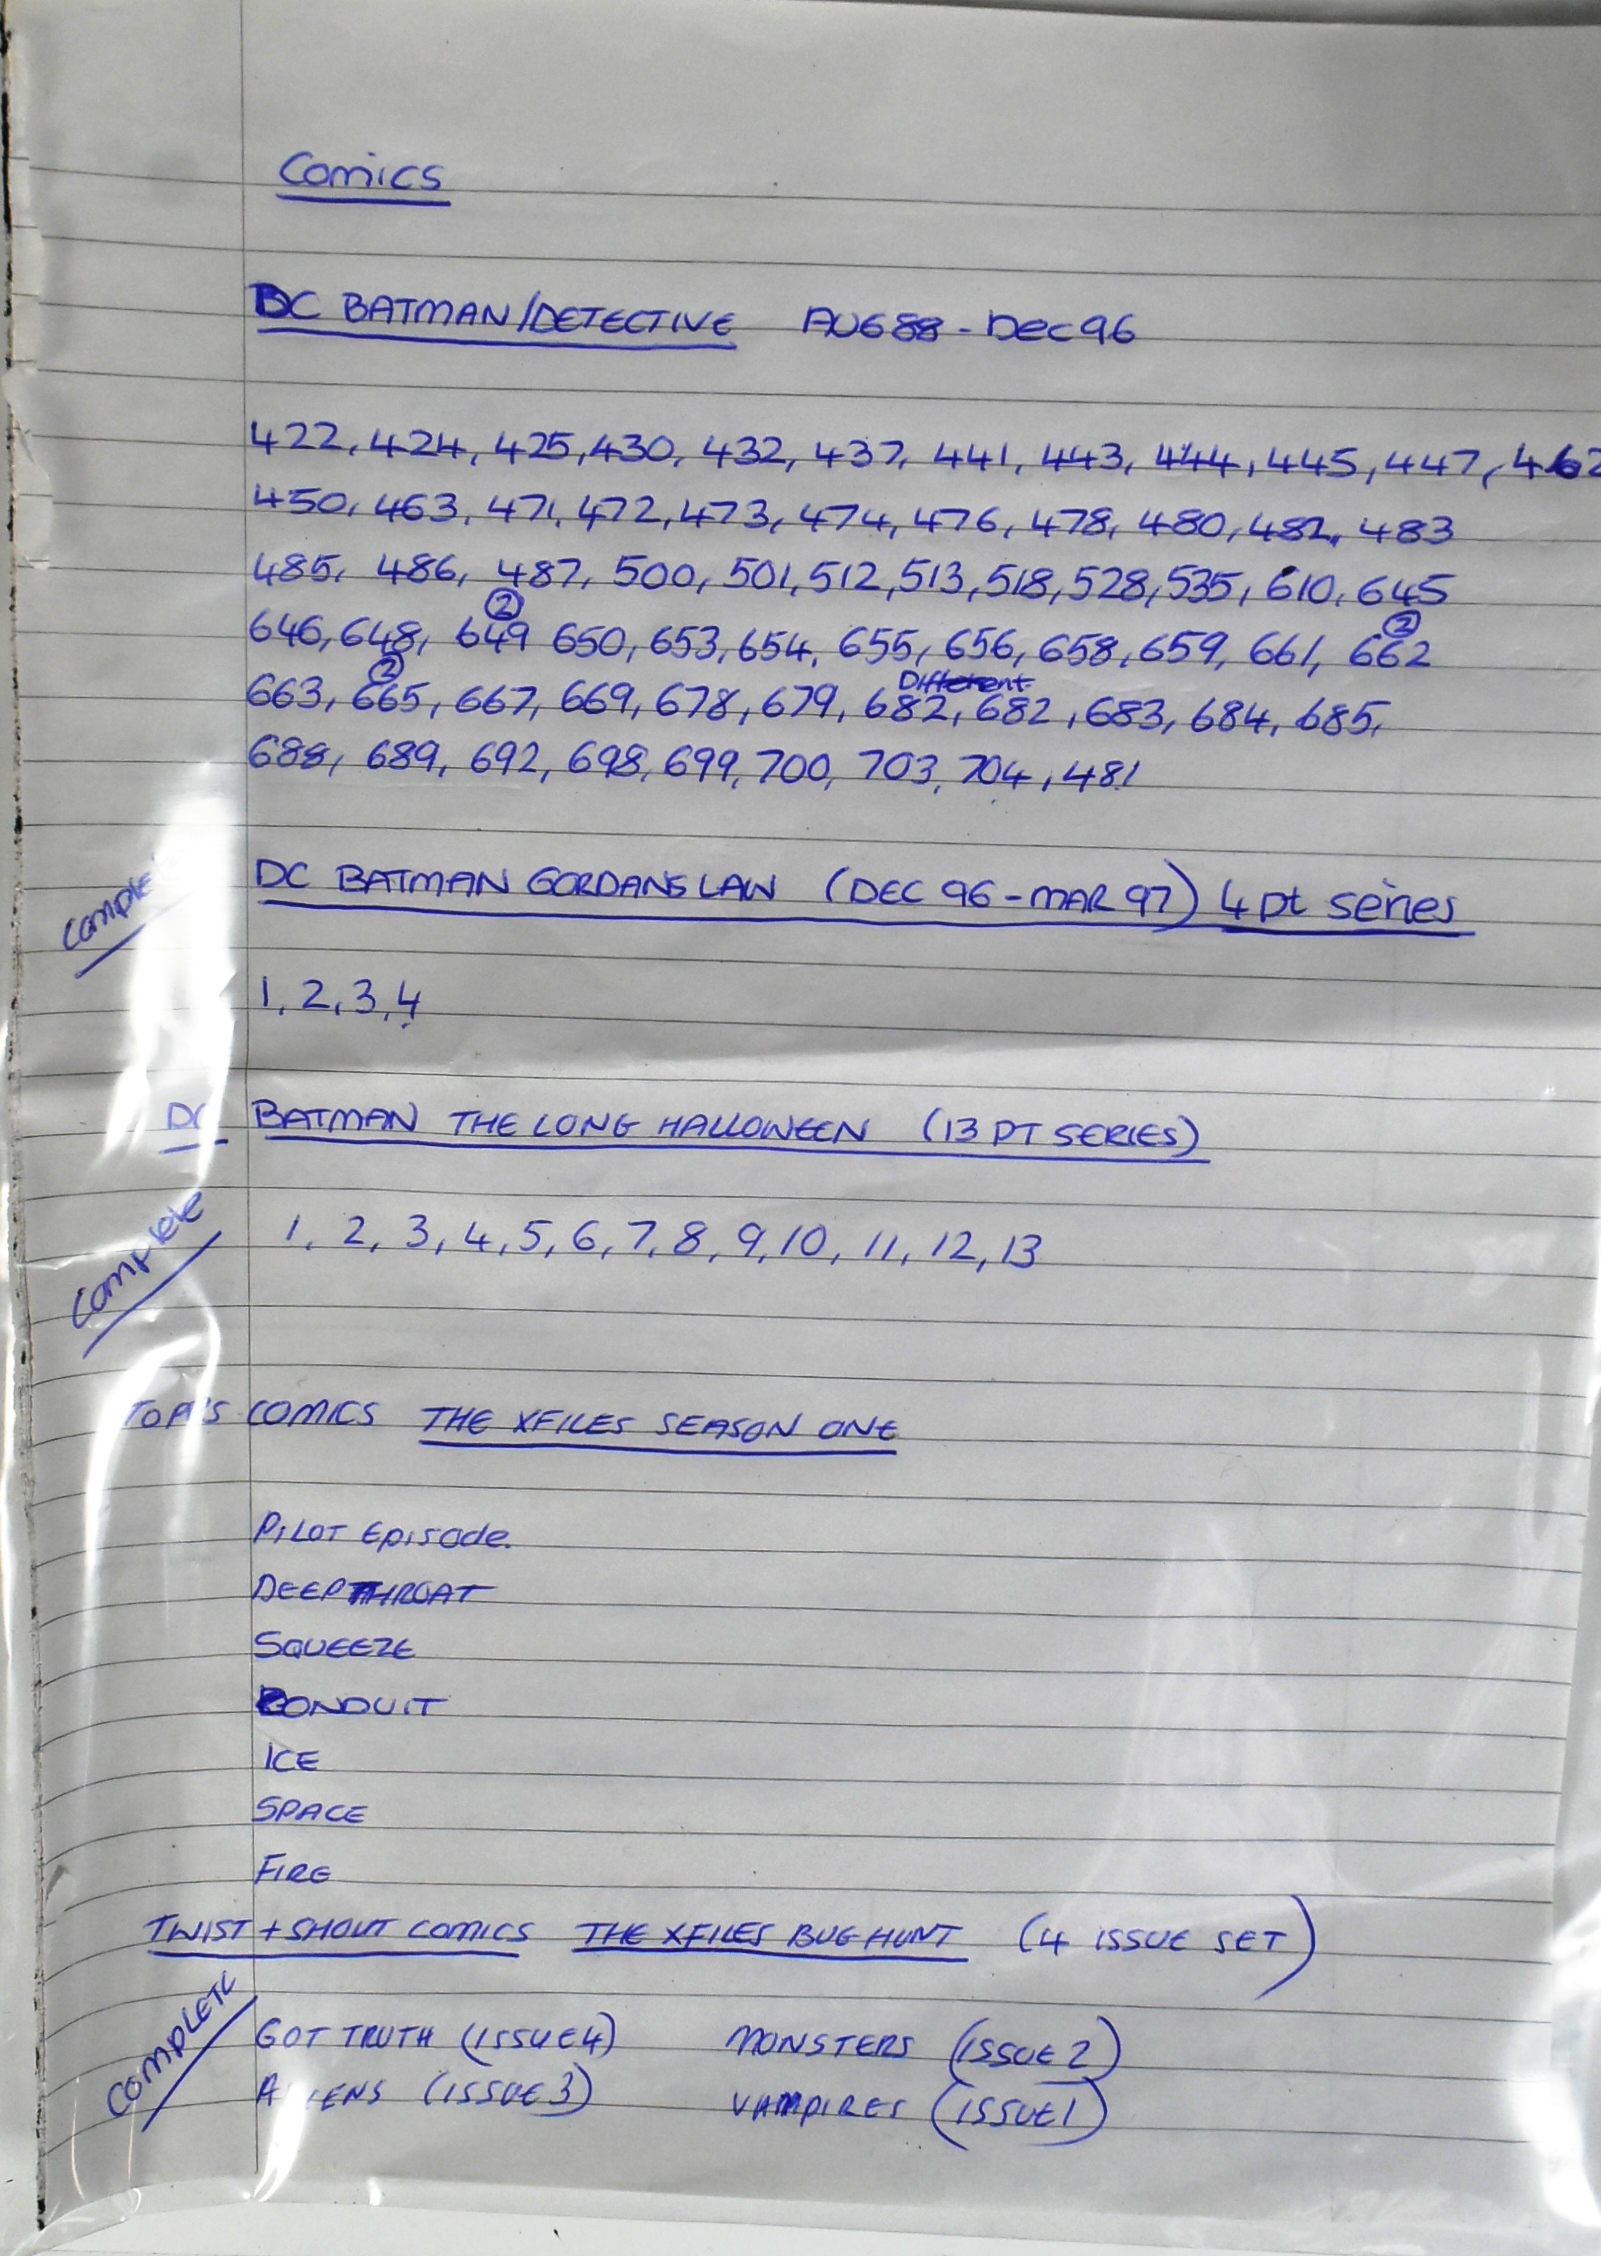 Comics
DC BATMAN/DETECTIVE AUG 88 - Dec 96
422, 424, 425, 430, 432, 437, 441, 443, 444, 445, 447, 462
450, 463, 471, 472, 473, 474, 476, 478, 480, 482, 483
485, 486, 487, 500, 501, 512, 513, 518, 528, 535, 610, 645
② ②
646, 648, 649 650, 653, 654, 655, 656, 658, 659, 661, 662
② Different
663, 665, 667, 669, 678, 679, 682, 682, 683, 684, 685,
688, 689, 692, 698, 699, 700, 703, 704, 481
DC BATMAN GORDANS LAW (DEC 96 - MAR 97) 4 pt series
1, 2, 3, 4
DC BATMAN THE LONG HALLOWEEN (13 PT SERIES)
Complete
1, 2, 3, 4, 5, 6, 7, 8, 9, 10, 11, 12, 13
TOPP'S COMICS THE XFILES SEASON ONE
PILOT Episode.
DEEPTHROAT
SQUEEZE
CONDUIT
ICE
SPACE
FIRE
TWIST + SHOUT COMICS THE XFILES BUG HUNT (4 ISSUE SET)
COMPLETE
GOT TRUTH (ISSUE 4) MONSTERS (ISSUE 2)
ALIENS (ISSUE 3) VAMPIRES (ISSUE 1)